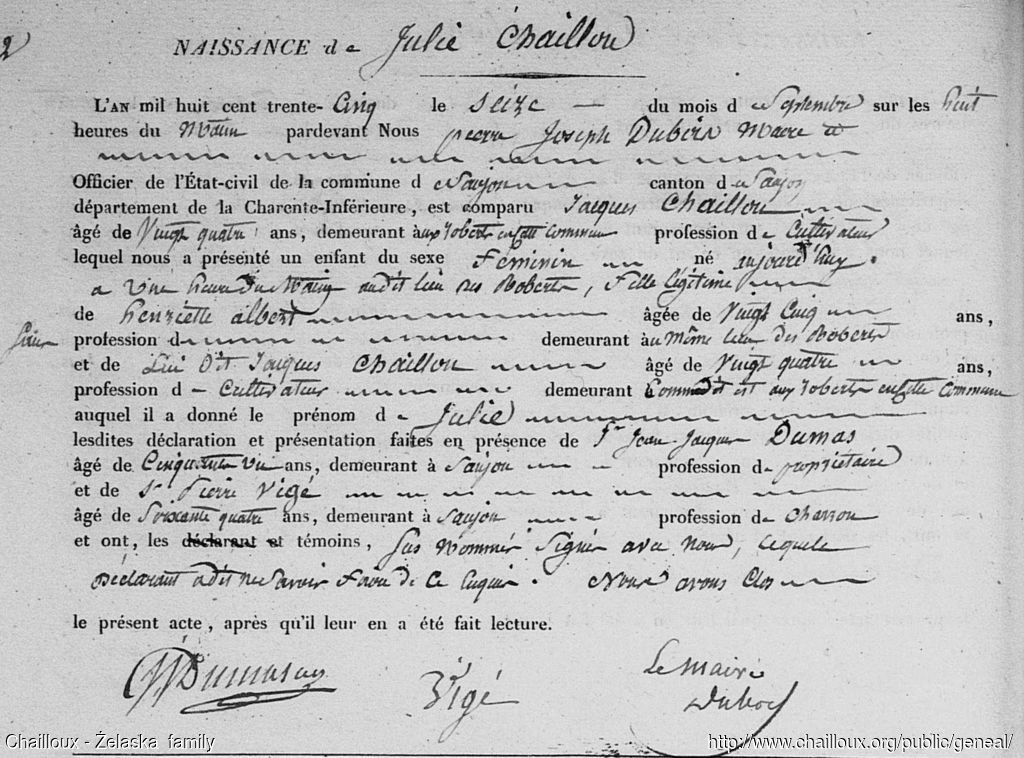 2
NAISSANCE de Julie Chaillou
L'AN mil huit cent trente-Cinq le Seize du mois de Septembre sur les huit
heures du Matin pardevant Nous pierre Joseph Dubois Maire et
Officier de l'État-civil de la commune de Saujon canton de Saujon
département de la Charente-Inférieure, est comparu Jacques Chaillou
âgé de Vingt quatre ans, demeurant aux Roberts en Cette Commune profession de Cultivateur
lequel nous a présenté un enfant du sexe Féminin né aujourd'huy.
a Une heure du Matin audit lieu des Roberts, Fille légitime
de henriette albert âgée de Vingt Cinq ans,
profession d demeurant au Même lieu des Roberts
et de Lui Dit Jacques Chaillou âgé de Vingt quatre ans,
profession de Cultivateur demeurant Comme dit est aux Roberts en Cette Commune
auquel il a donné le prénom de Julie
lesdites déclaration et présentation faites en présence de Sr Jean Jacques Dumas
âgé de Cinquante ans, demeurant à Saujon profession de propriétaire
et de Sr Pierre Vigé
âgé de Soixante quatre ans, demeurant à Saujon profession de Charron
et ont, les déclarant et témoins, Sus Nommés Signés avec Nous, lequel
Déclarant a dit ne Savoir Faire de Ce Enquis. Nous avons Clos
le présent acte, après qu'il leur en a été fait lecture.
JJ Dumas Vigé Le Maire
Dubois
Chailloux - Żelaska family http://www.chailloux.org/public/geneal/